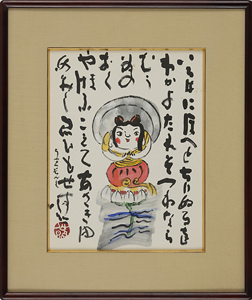 いろはにほへとちりぬるを
わかよたれそつねなら
むう
ゐの
おく
やまけふこえてあさきゆ
めみしゑひもせす